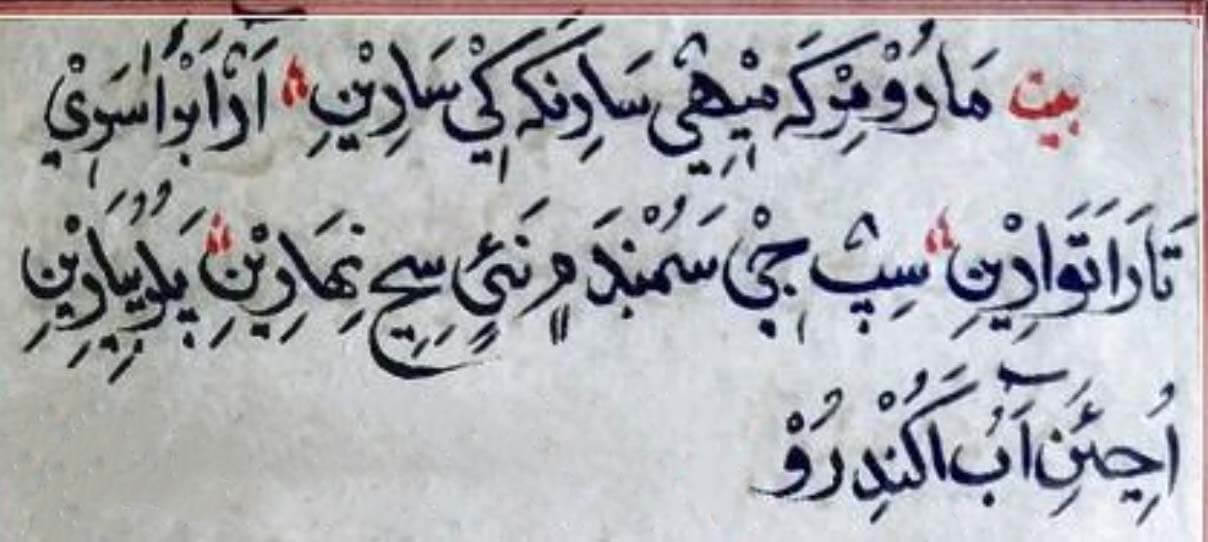 بيت مَارُوْ مِرْکَہ مِيْهِي سَارِنکہ کِيْ سَارِيْنِ ؞ آرَا اَبْرَ اٰسَرِيْ
تَارَا تَوَارِيْنِ ؞ سِپ جِيْ سَمُنْدَ ۾ نَئِي سِجِ نِهَارِيْنِ ؞ پَلَرُ پِيَارِيْنِ
اُڃِئَنِ آبُ اَکَنْدِرُوْ